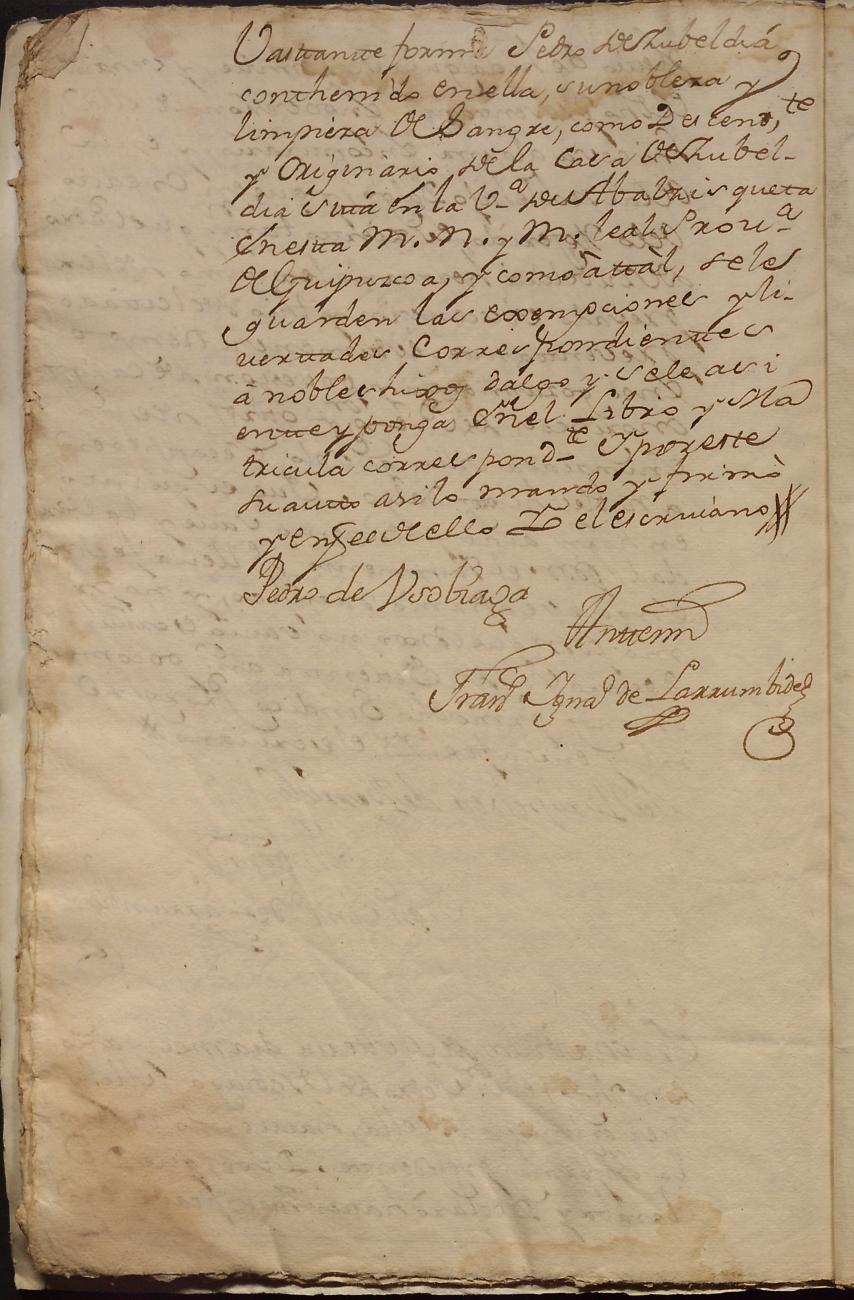 Vasttantte forma Pedro de Zubeldiá
conthenido en ella, su nobleza y
limpieza de Sangre, como Descend,te
y Originario, de la Casa de Zubel-
dia sittá en la V.a de Abalzisquetta
en estta M. N. y M. leal Prov.a
de Guipuzcoa, y como â ttâl, se le
guarden las exempciones y li-
verttades Correspondienttes
â nobles hixos dalgo y se le asi
entte y ponga en el Libro y Ma
tricula correspond.te Y por este
su autto asi lo mando y firmò
y en fee de ello Yo el escrivano
Pedro de Vsobiaga
Antemi
Fran.co Ygna.o de Larrumbide